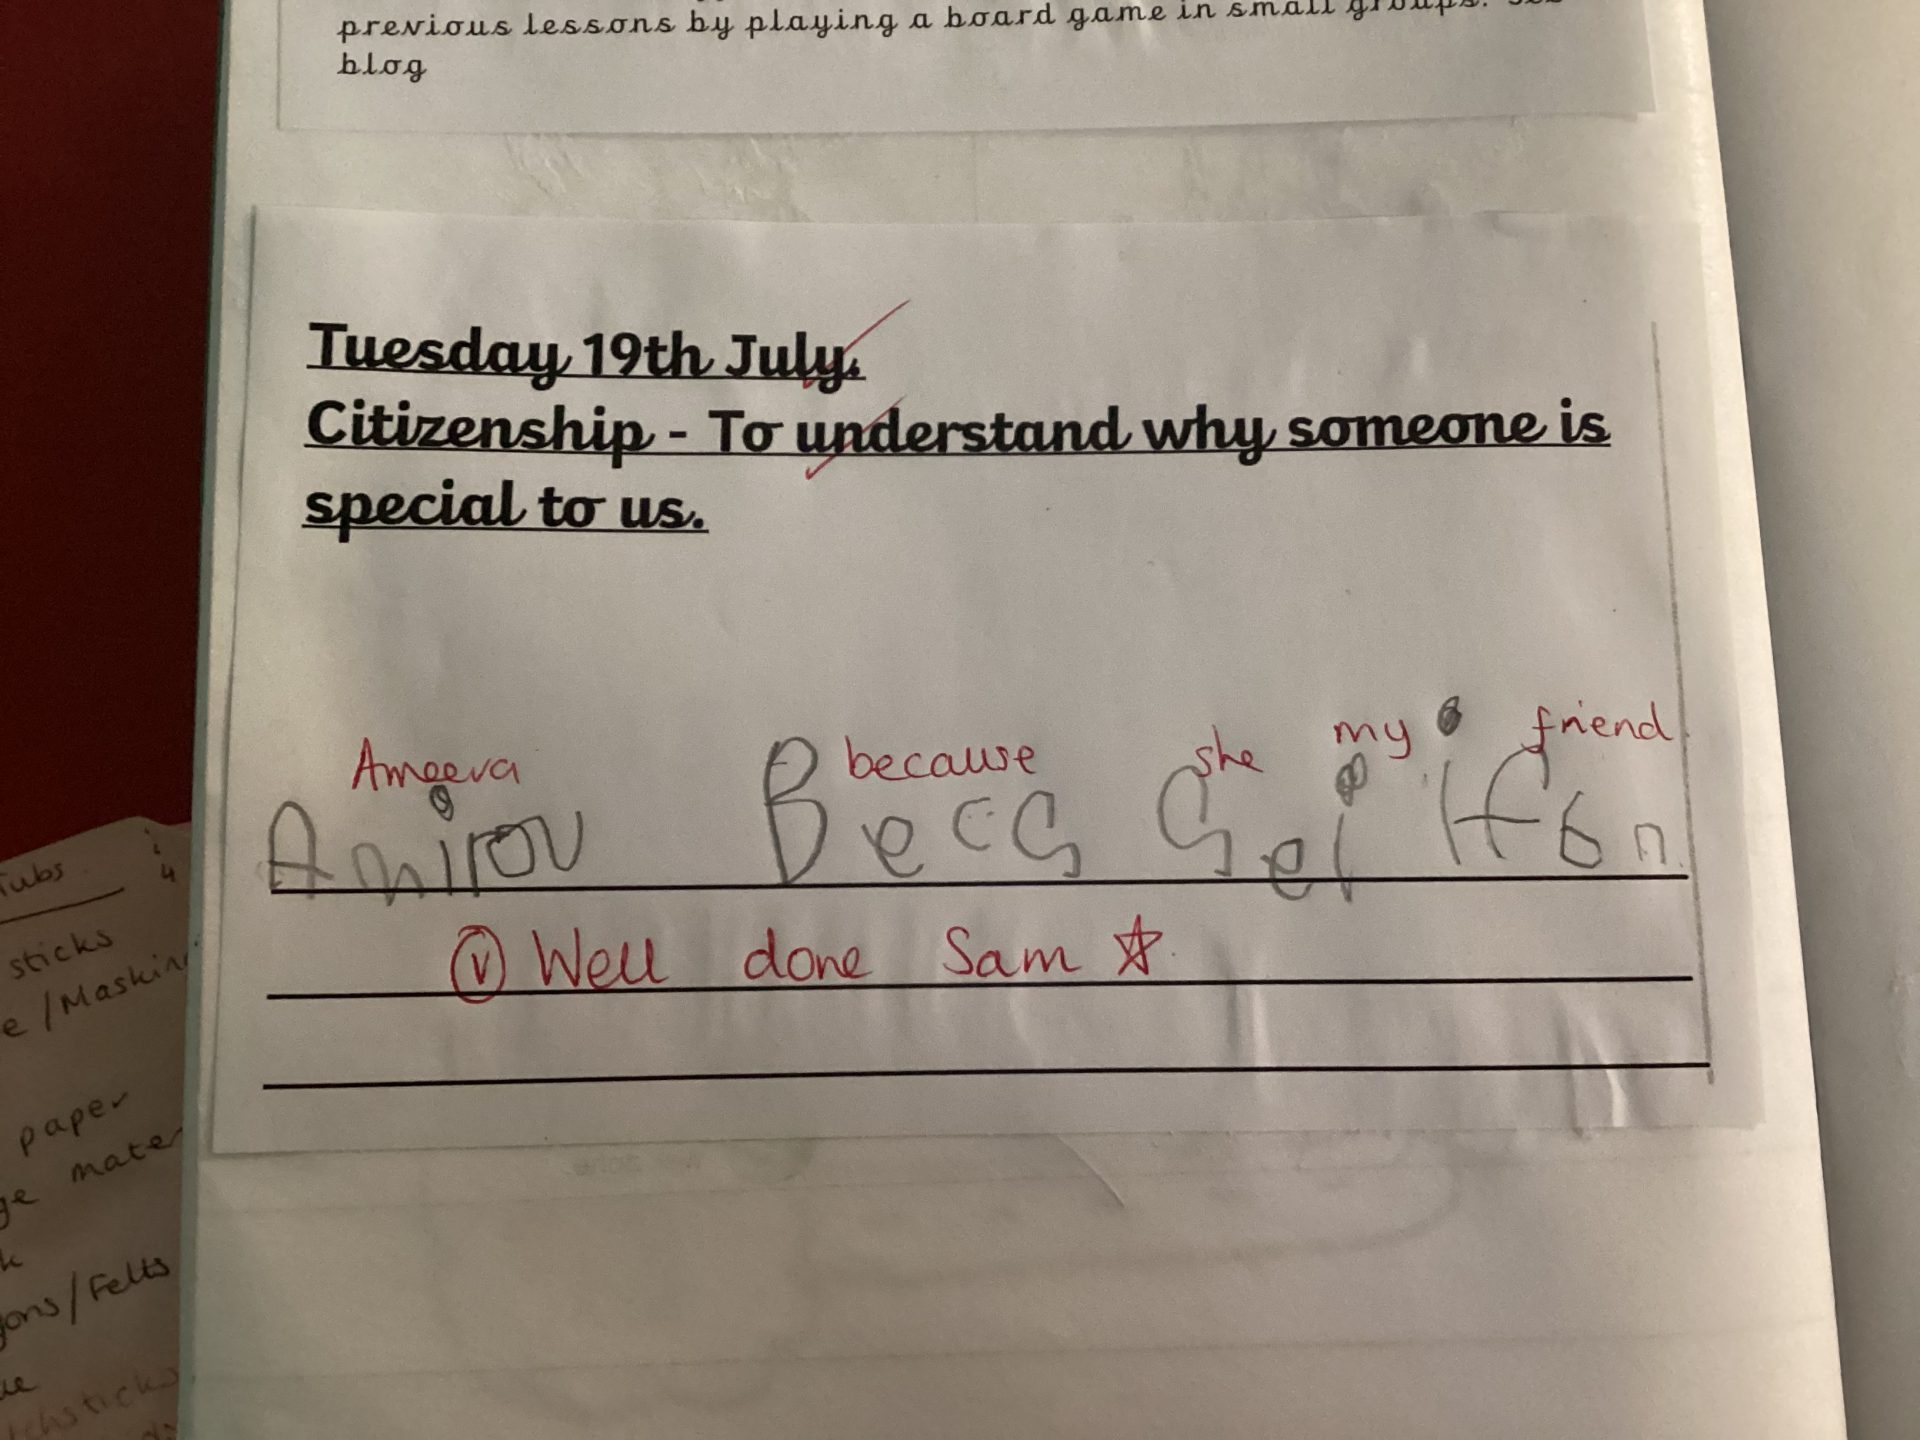 previous lessons by playing a board game in small groups. See
blog
Tuesday 19th July.
Citizenship - To understand why someone is
special to us.
Ameera because she my friend
Becs Sei
V Well done Sam
Tubs
4
sticks
e / Masking
paper
mater
ge
ons / Felts
ue
chsticks